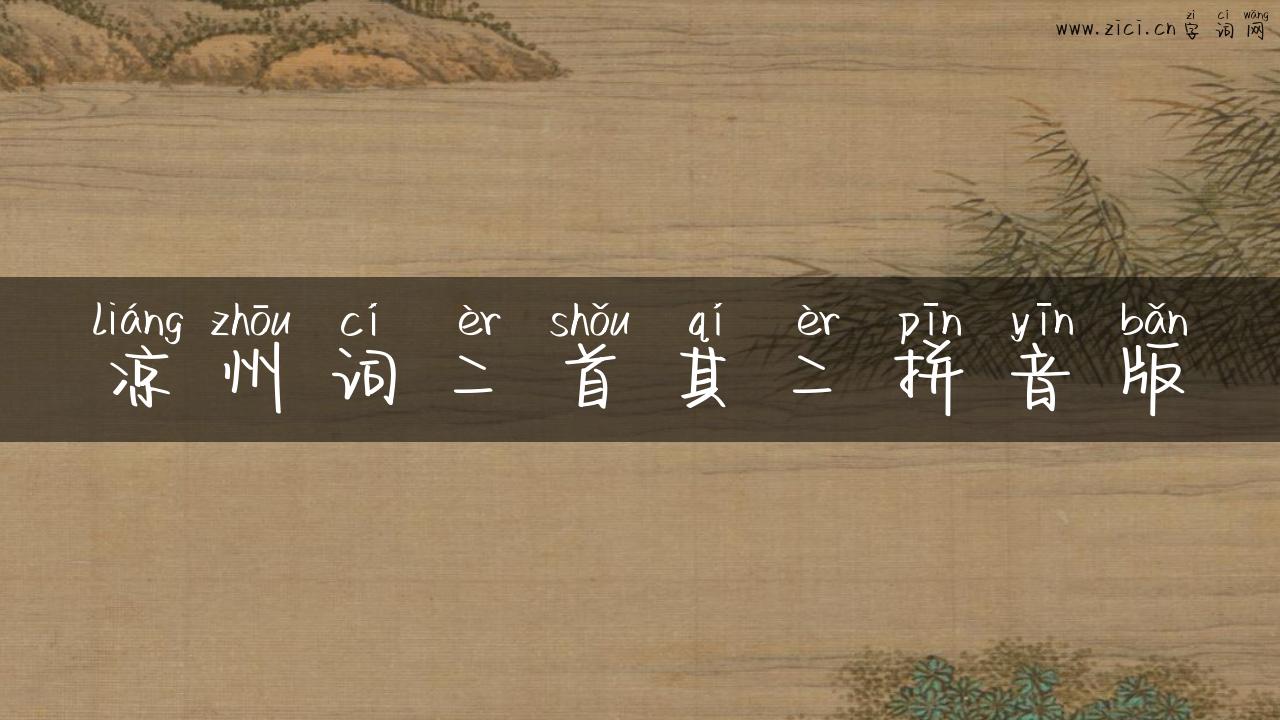 zì cí wǎng
www.zici.cn 字 词 网
liáng zhōu cí èr shǒu qí èr pīn yīn bǎn
凉 州 词 二 首 其 二 拼 音 版